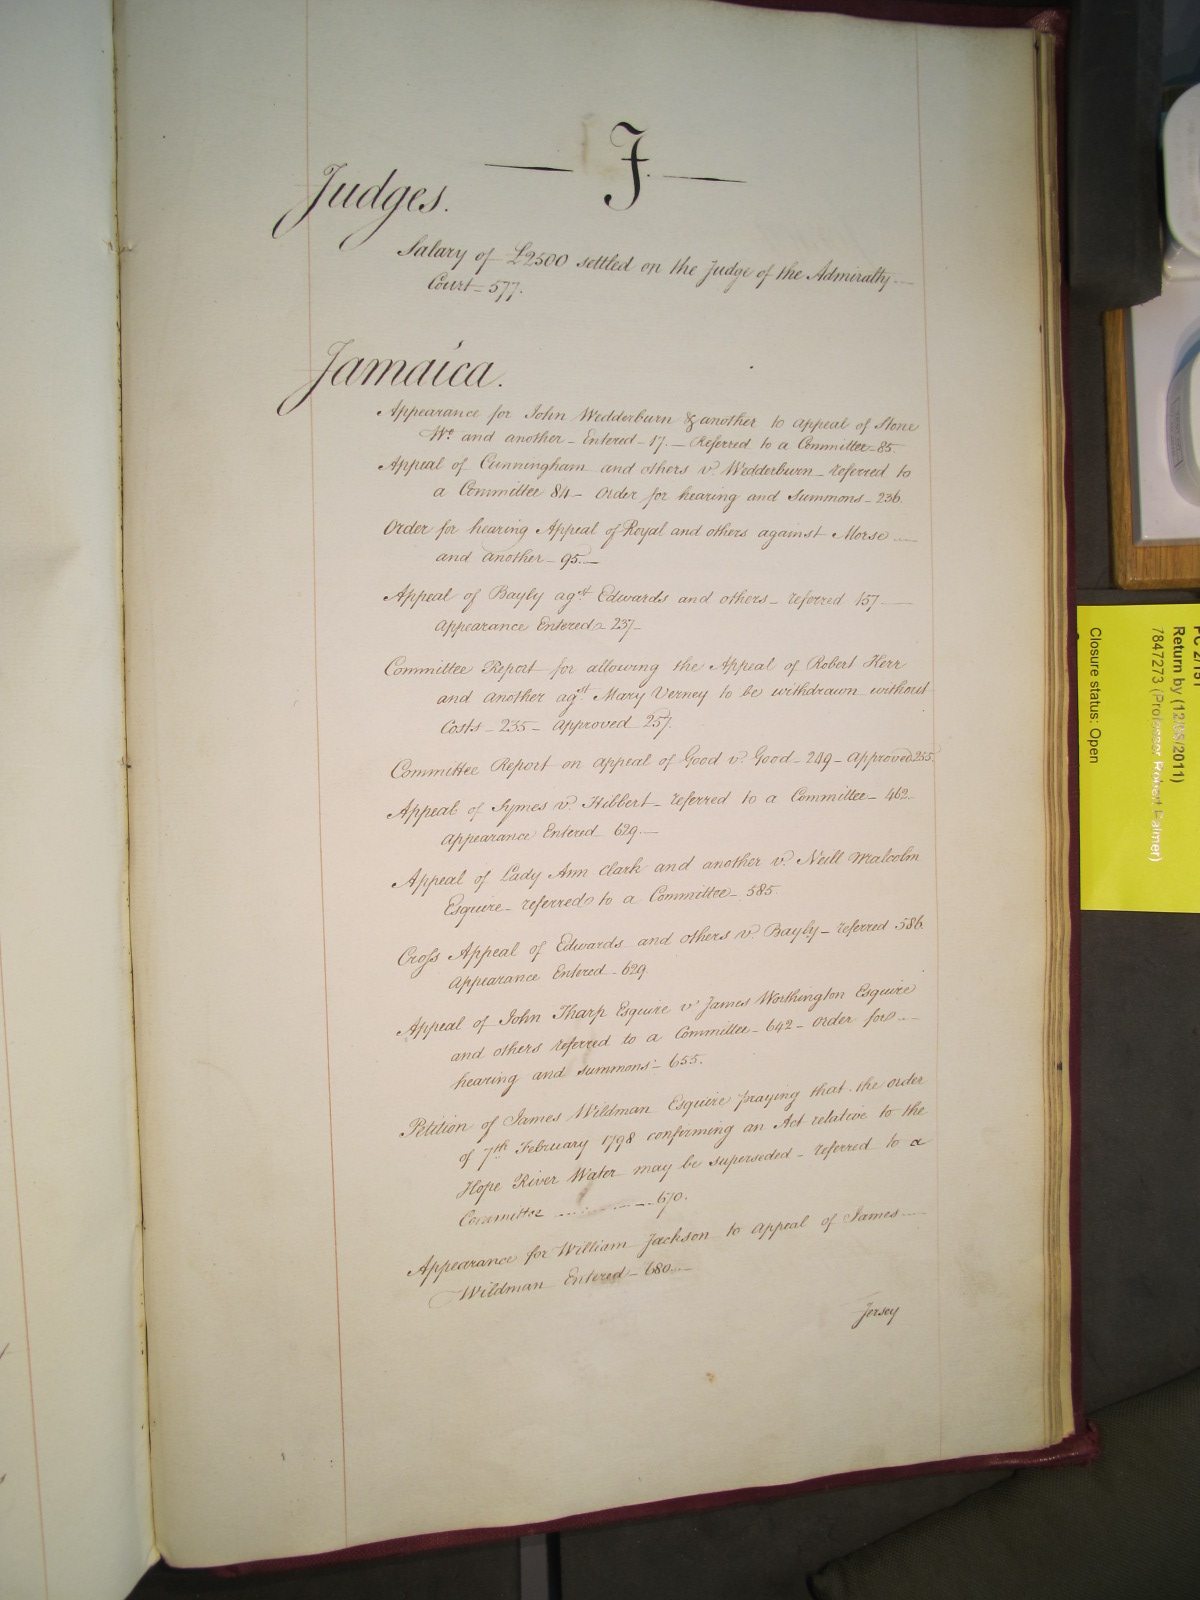 — J —
Judges.
Salary of £2500 settled on the Judge of the Admiralty —
Court — 577.
Jamaica.
Appearance for John Wedderburn & another to appeal of Stone
Wo. and another — Entered — 17. — Referred to a Committee — 85.
Appeal of Cunningham and others v. Wedderburn — referred to
a Committee 84 — Order for hearing and Summons — 236.
Order for hearing Appeal of Royal and others against Morse —
and another — 95. —
Appeal of Bayly agst. Edwards and others — referred 157 —
appearance Entered — 237 —
Committee Report for allowing the Appeal of Robert Herr
and another agst. Mary Verney to be withdrawn without
Costs — 235 — approved 257.
Committee Report on appeal of Good v. Good — 249 — approved 255.
Appeal of Symes v. Hibbert — referred to a Committee — 462.
appearance Entered 629. —
Appeal of Lady Ann Clark and another v. Neill Malcolm
Esquire — referred to a Committee — 585.
Cross Appeal of Edwards and others v. Bayly — referred 586.
appearance Entered — 629.
Appeal of John Tharp Esquire v. James Worthington Esquire
and others referred to a Committee — 642 — order for —
hearing and summons — 655.
Petition of James Wildman Esquire praying that the order
of 7th. February 1798 confirming an Act relative to the
Hope River Water may be superseded — referred to a
Committee — 670.
Appearance for William Jackson to appeal of James —
Wildman Entered — 680 —
Jersey
PC 2/151
Return by (12/05/2011)
7847273 (Professor Robert Palmer)
Closure status: Open